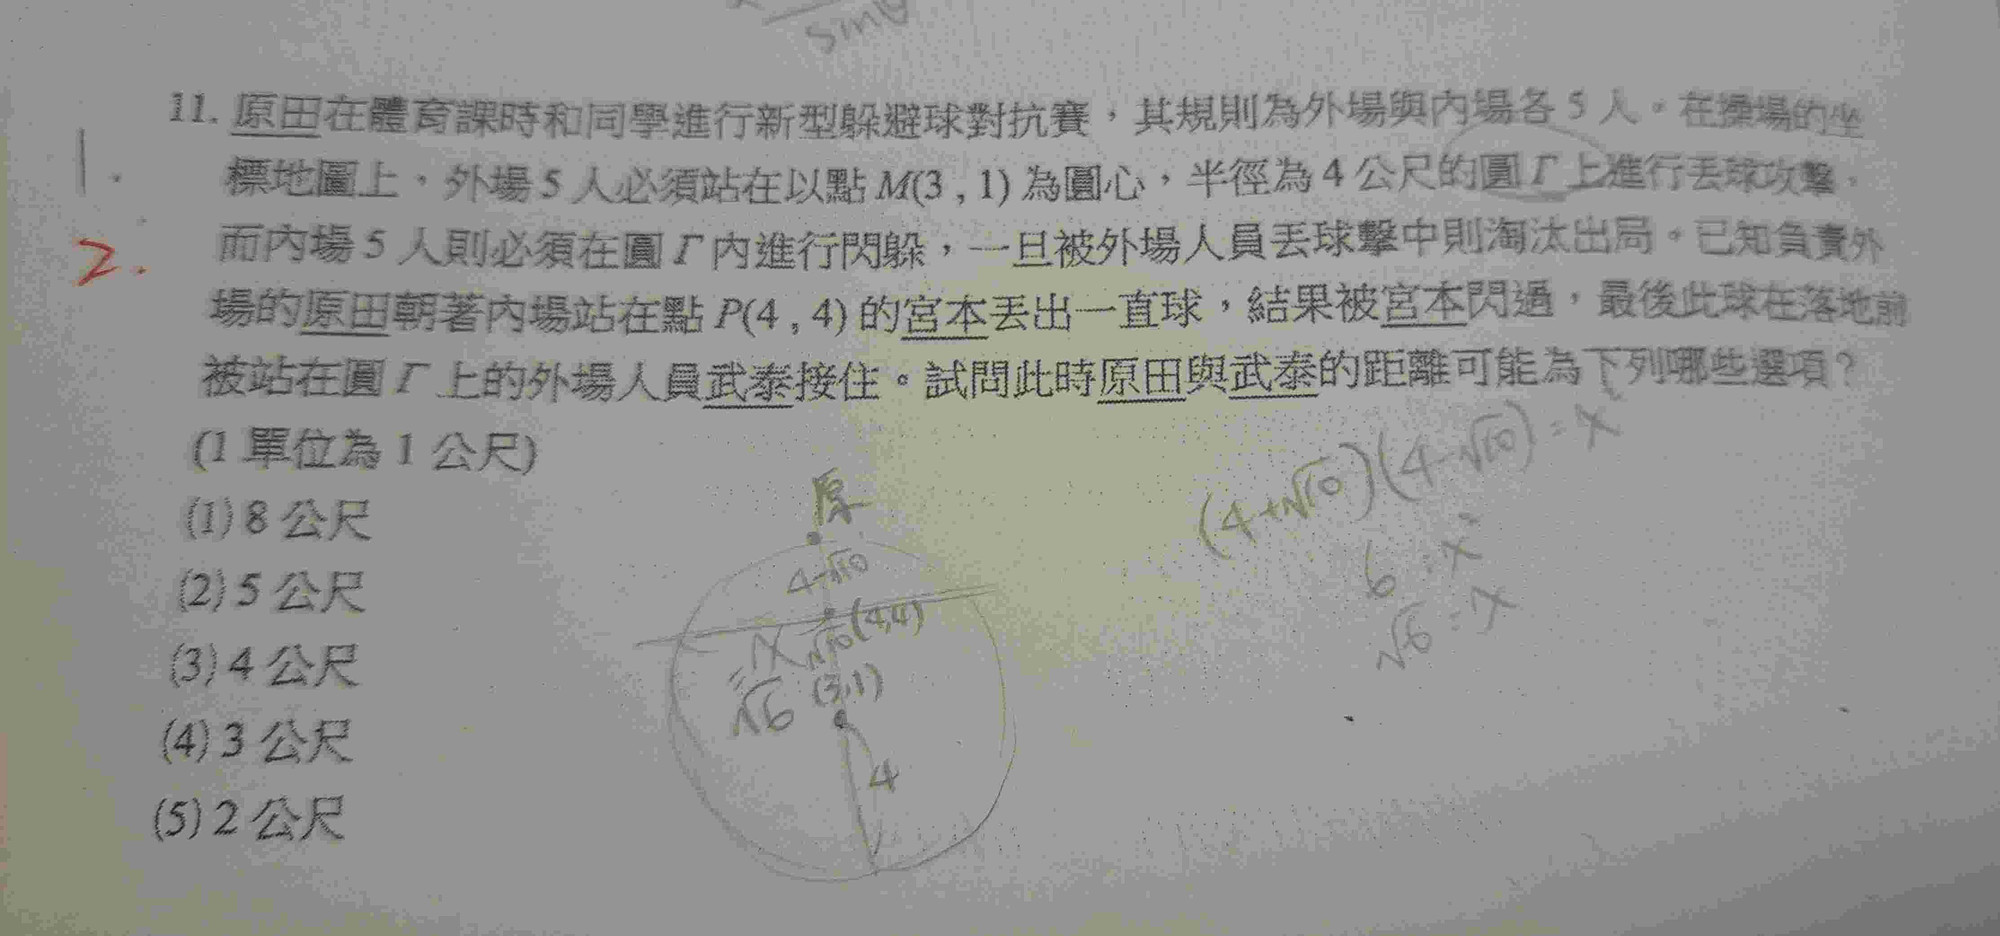 sinθ
11. 原田在體育課時和同學進行新型躲避球對抗賽，其規則為外場與內場各 5 人。在操場的坐
1.
標地圖上，外場 5 人必須站在以點 M(3 , 1) 為圓心，半徑為 4 公尺的圓 Γ 上進行丟球攻擊，
2.
而內場 5 人則必須在圓 Γ 內進行閃躲，一旦被外場人員丟球擊中則淘汰出局。已知負責外
場的原田朝著內場站在點 P(4 , 4) 的宮本丟出一直球，結果被宮本閃過，最後此球在落地前
被站在圓 Γ 上的外場人員武泰接住。試問此時原田與武泰的距離可能為下列哪些選項？
(1 單位為 1 公尺)
(4+√10)(4-√10)=x²
(1) 8 公尺
原
6=x²
(2) 5 公尺
4-√10
√6=x
(4,4)
(3) 4 公尺
x
√10
=√6
(3,1)
(4) 3 公尺
4
(5) 2 公尺